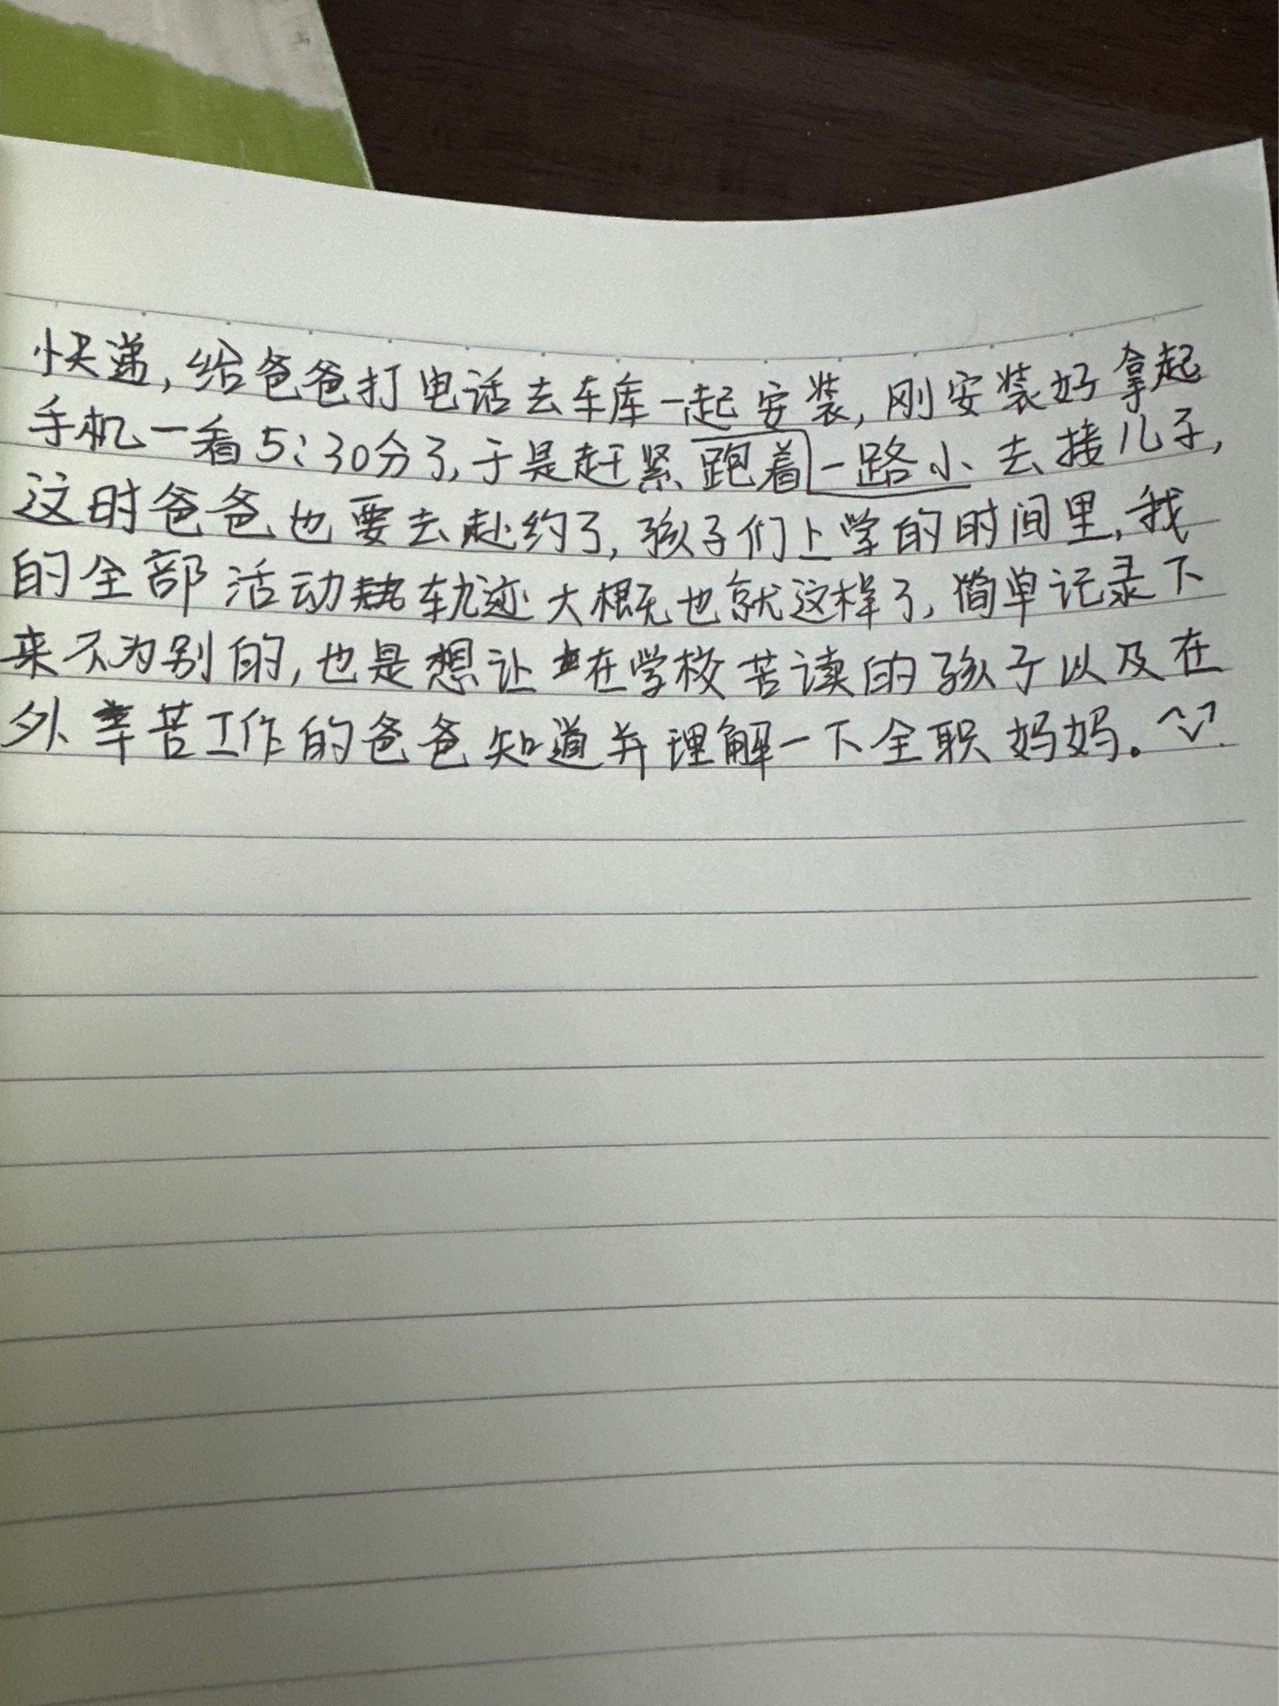 快递，给爸爸打电话去车库一起安装，刚安装好拿起
手机一看5:30分了，于是赶紧跑着一路小去接儿子，
这时爸爸也要去赴约了，孩子们上学的时间里，我
的全部活动轨迹大概也就这样了，简单记录下
来不为别的，也是想让在学校苦读的孩子以及在
外辛苦工作的爸爸知道并理解一下全职妈妈。